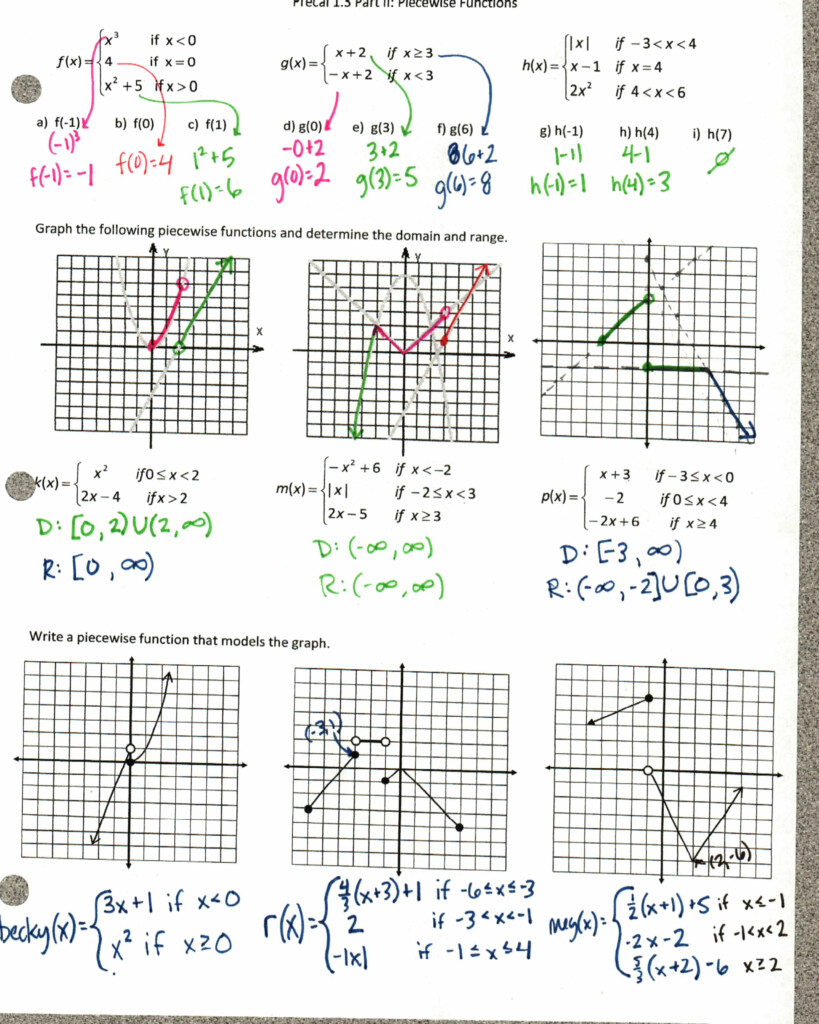 Precal 1.3 Part II: Piecewise Functions
f(x)= { x³ if x<0
4 if x=0
x²+5 if x>0
g(x)= { x+2 if x≥3
-x+2 if x<3
h(x)= { |x| if -3<x<4
x-1 if x=4
2x² if 4<x<6
a) f(-1) b) f(0) c) f(1) d) g(0) e) g(3) f) g(6) g) h(-1) h) h(4) i) h(7)
(-1)³
f(-1)=-1
f(0)=4
1²+5
f(1)=6
-0+2
g(0)=2
3+2
g(3)=5
6+2
g(6)=8
|-1|
h(-1)=1
4-1
h(4)=3
∅
Graph the following piecewise functions and determine the domain and range.
Y
X
Y
X
k(x)= { x² if 0≤x<2
2x-4 if x>2
D: [0,2)U(2,∞)
R: [0,∞)
m(x)= { -x²+6 if x<-2
|x| if -2≤x<3
2x-5 if x≥3
D: (-∞,∞)
R: (-∞,∞)
p(x)= { x+3 if -3≤x<0
-2 if 0≤x<4
-2x+6 if x≥4
D: [-3,∞)
R: (-∞,-2]U[0,3)
Write a piecewise function that models the graph.
(-3,1)
(2,-6)
becky(x)= { 3x+1 if x<0
x² if x≥0
r(x)= { 4/3(x+3)+1 if -6≤x≤-3
2 if -3<x<-1
-|x| if -1≤x≤4
meg(x)= { 1/2(x+1)+5 if x≤-1
-2x-2 if -1<x<2
5/3(x+2)-6 x≥2